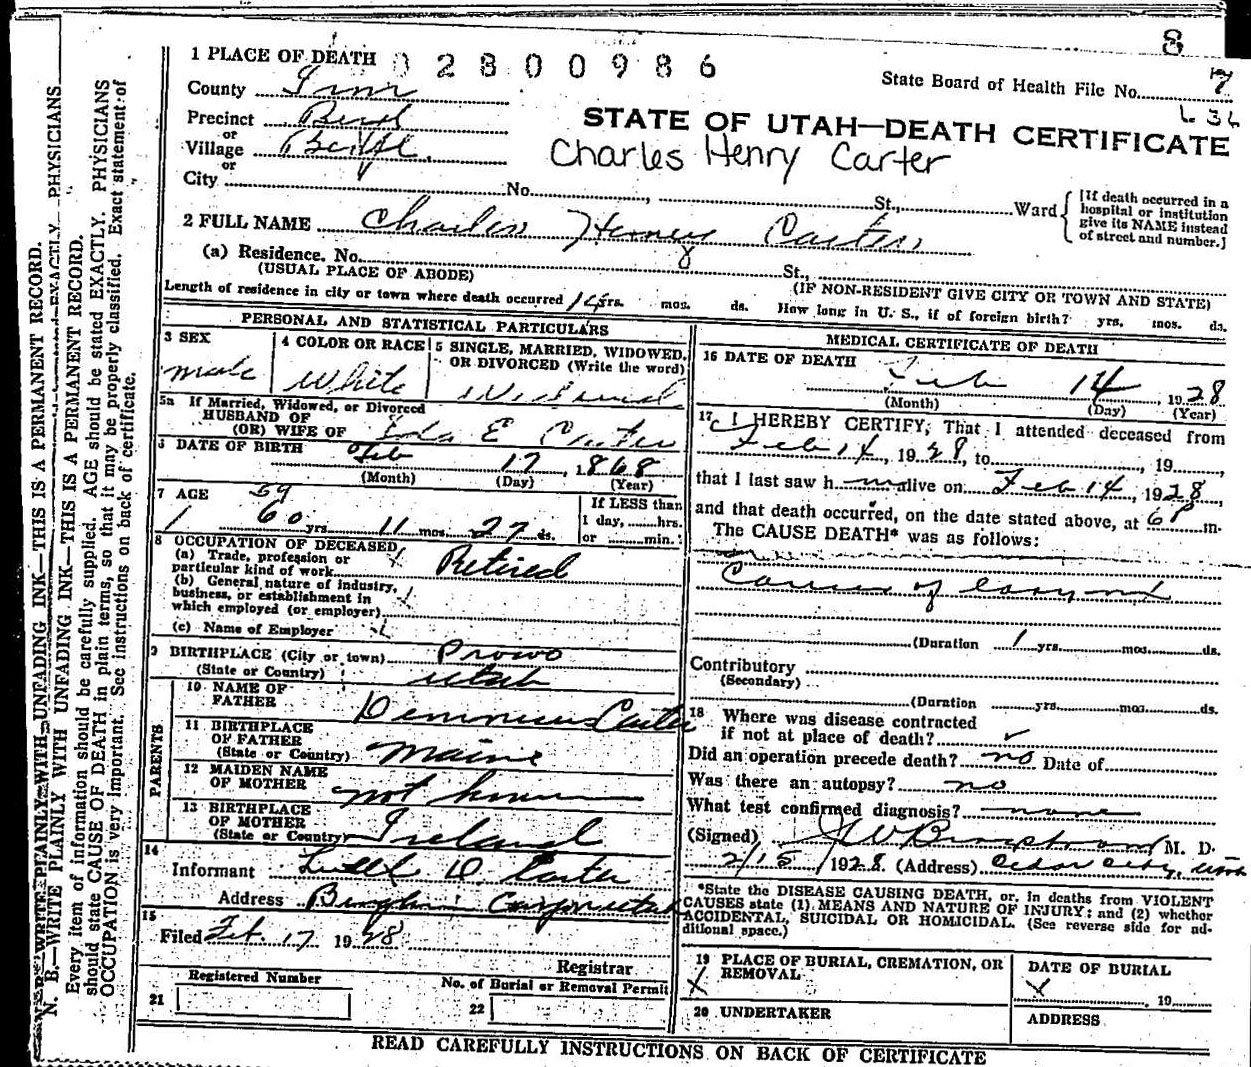 8
1 PLACE OF DEATH 02800986
State Board of Health File No. 7
County Iron
L 36
Precinct
STATE OF UTAH—DEATH CERTIFICATE
or
Village
Charles Henry Carter
or
City No. St., Ward
[If death occurred in a hospital or institution give its NAME instead of street and number.]
2 FULL NAME Charles Henry Carter
(a) Residence. No. St.,
(USUAL PLACE OF ABODE) (IF NON-RESIDENT GIVE CITY OR TOWN AND STATE)
Length of residence in city or town where death occurred yrs. mos. ds. How long in U. S., if of foreign birth? yrs. mos. ds.
PERSONAL AND STATISTICAL PARTICULARS
3 SEX male
4 COLOR OR RACE White
5 SINGLE, MARRIED, WIDOWED, OR DIVORCED (Write the word)
Widowed
5a If Married, Widowed, or Divorced
HUSBAND OF
(OR) WIFE OF Ida E Carter
6 DATE OF BIRTH Feb 17, 1868
(Month) (Day) (Year)
7 AGE 59
60 yrs 11 mos. 27 ds.
If LESS than
1 day, hrs.
or min.
8 OCCUPATION OF DECEASED
(a) Trade, profession or
particular kind of work Retired
(b) General nature of industry,
business, or establishment in
which employed (or employer)
(c) Name of Employer
9 BIRTHPLACE (City or town) Provo
(State or Country) Utah
PARENTS
10 NAME OF
FATHER Carter
11 BIRTHPLACE
OF FATHER
(State or Country) Maine
12 MAIDEN NAME
OF MOTHER not known
13 BIRTHPLACE
OF MOTHER
(State or Country) Ireland
14
Informant D. Carter
Address Bingham Canyon utah
15
Filed Feb. 17 1928
Registrar
Registered Number
No. of Burial or Removal Permit
21
22
MEDICAL CERTIFICATE OF DEATH
16 DATE OF DEATH Feb 14, 1928
(Month) (Day) (Year)
17 I HEREBY CERTIFY, That I attended deceased from
Feb 14, 1928, to , 19 ,
that I last saw h m alive on Feb 14, 1928,
and that death occurred, on the date stated above, at 6P m.
The CAUSE DEATH* was as follows:
Cancer of
(Duration 1 yrs. mos. ds.
Contributory
(Secondary)
(Duration yrs. mos. ds.
18 Where was disease contracted
if not at place of death? ✓
Did an operation precede death? no Date of
Was there an autopsy? no
What test confirmed diagnosis? none
(Signed) M. D.
2/15/1928. (Address) Cedar City, utah
*State the DISEASE CAUSING DEATH, or, in deaths from VIOLENT
CAUSES state (1) MEANS AND NATURE OF INJURY; and (2) whether
ACCIDENTAL, SUICIDAL OR HOMICIDAL. (See reverse side for ad-
ditional space.)
19 PLACE OF BURIAL, CREMATION, OR
REMOVAL
X
DATE OF BURIAL
X , 19
20 UNDERTAKER
ADDRESS
READ CAREFULLY INSTRUCTIONS ON BACK OF CERTIFICATE
N. B.—WRITE PLAINLY WITH UNFADING INK—THIS IS A PERMANENT RECORD.
Every item of information should be carefully supplied. AGE should be stated EXACTLY. PHYSICIANS
should state CAUSE OF DEATH in plain terms, so that it may be properly classified. Exact statement of
OCCUPATION is very important. See instructions on back of certificate.